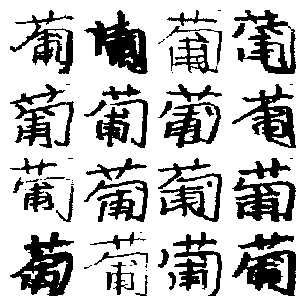 葡葡葡葡
葡葡葡葡
葡葡葡葡
葡葡葡葡